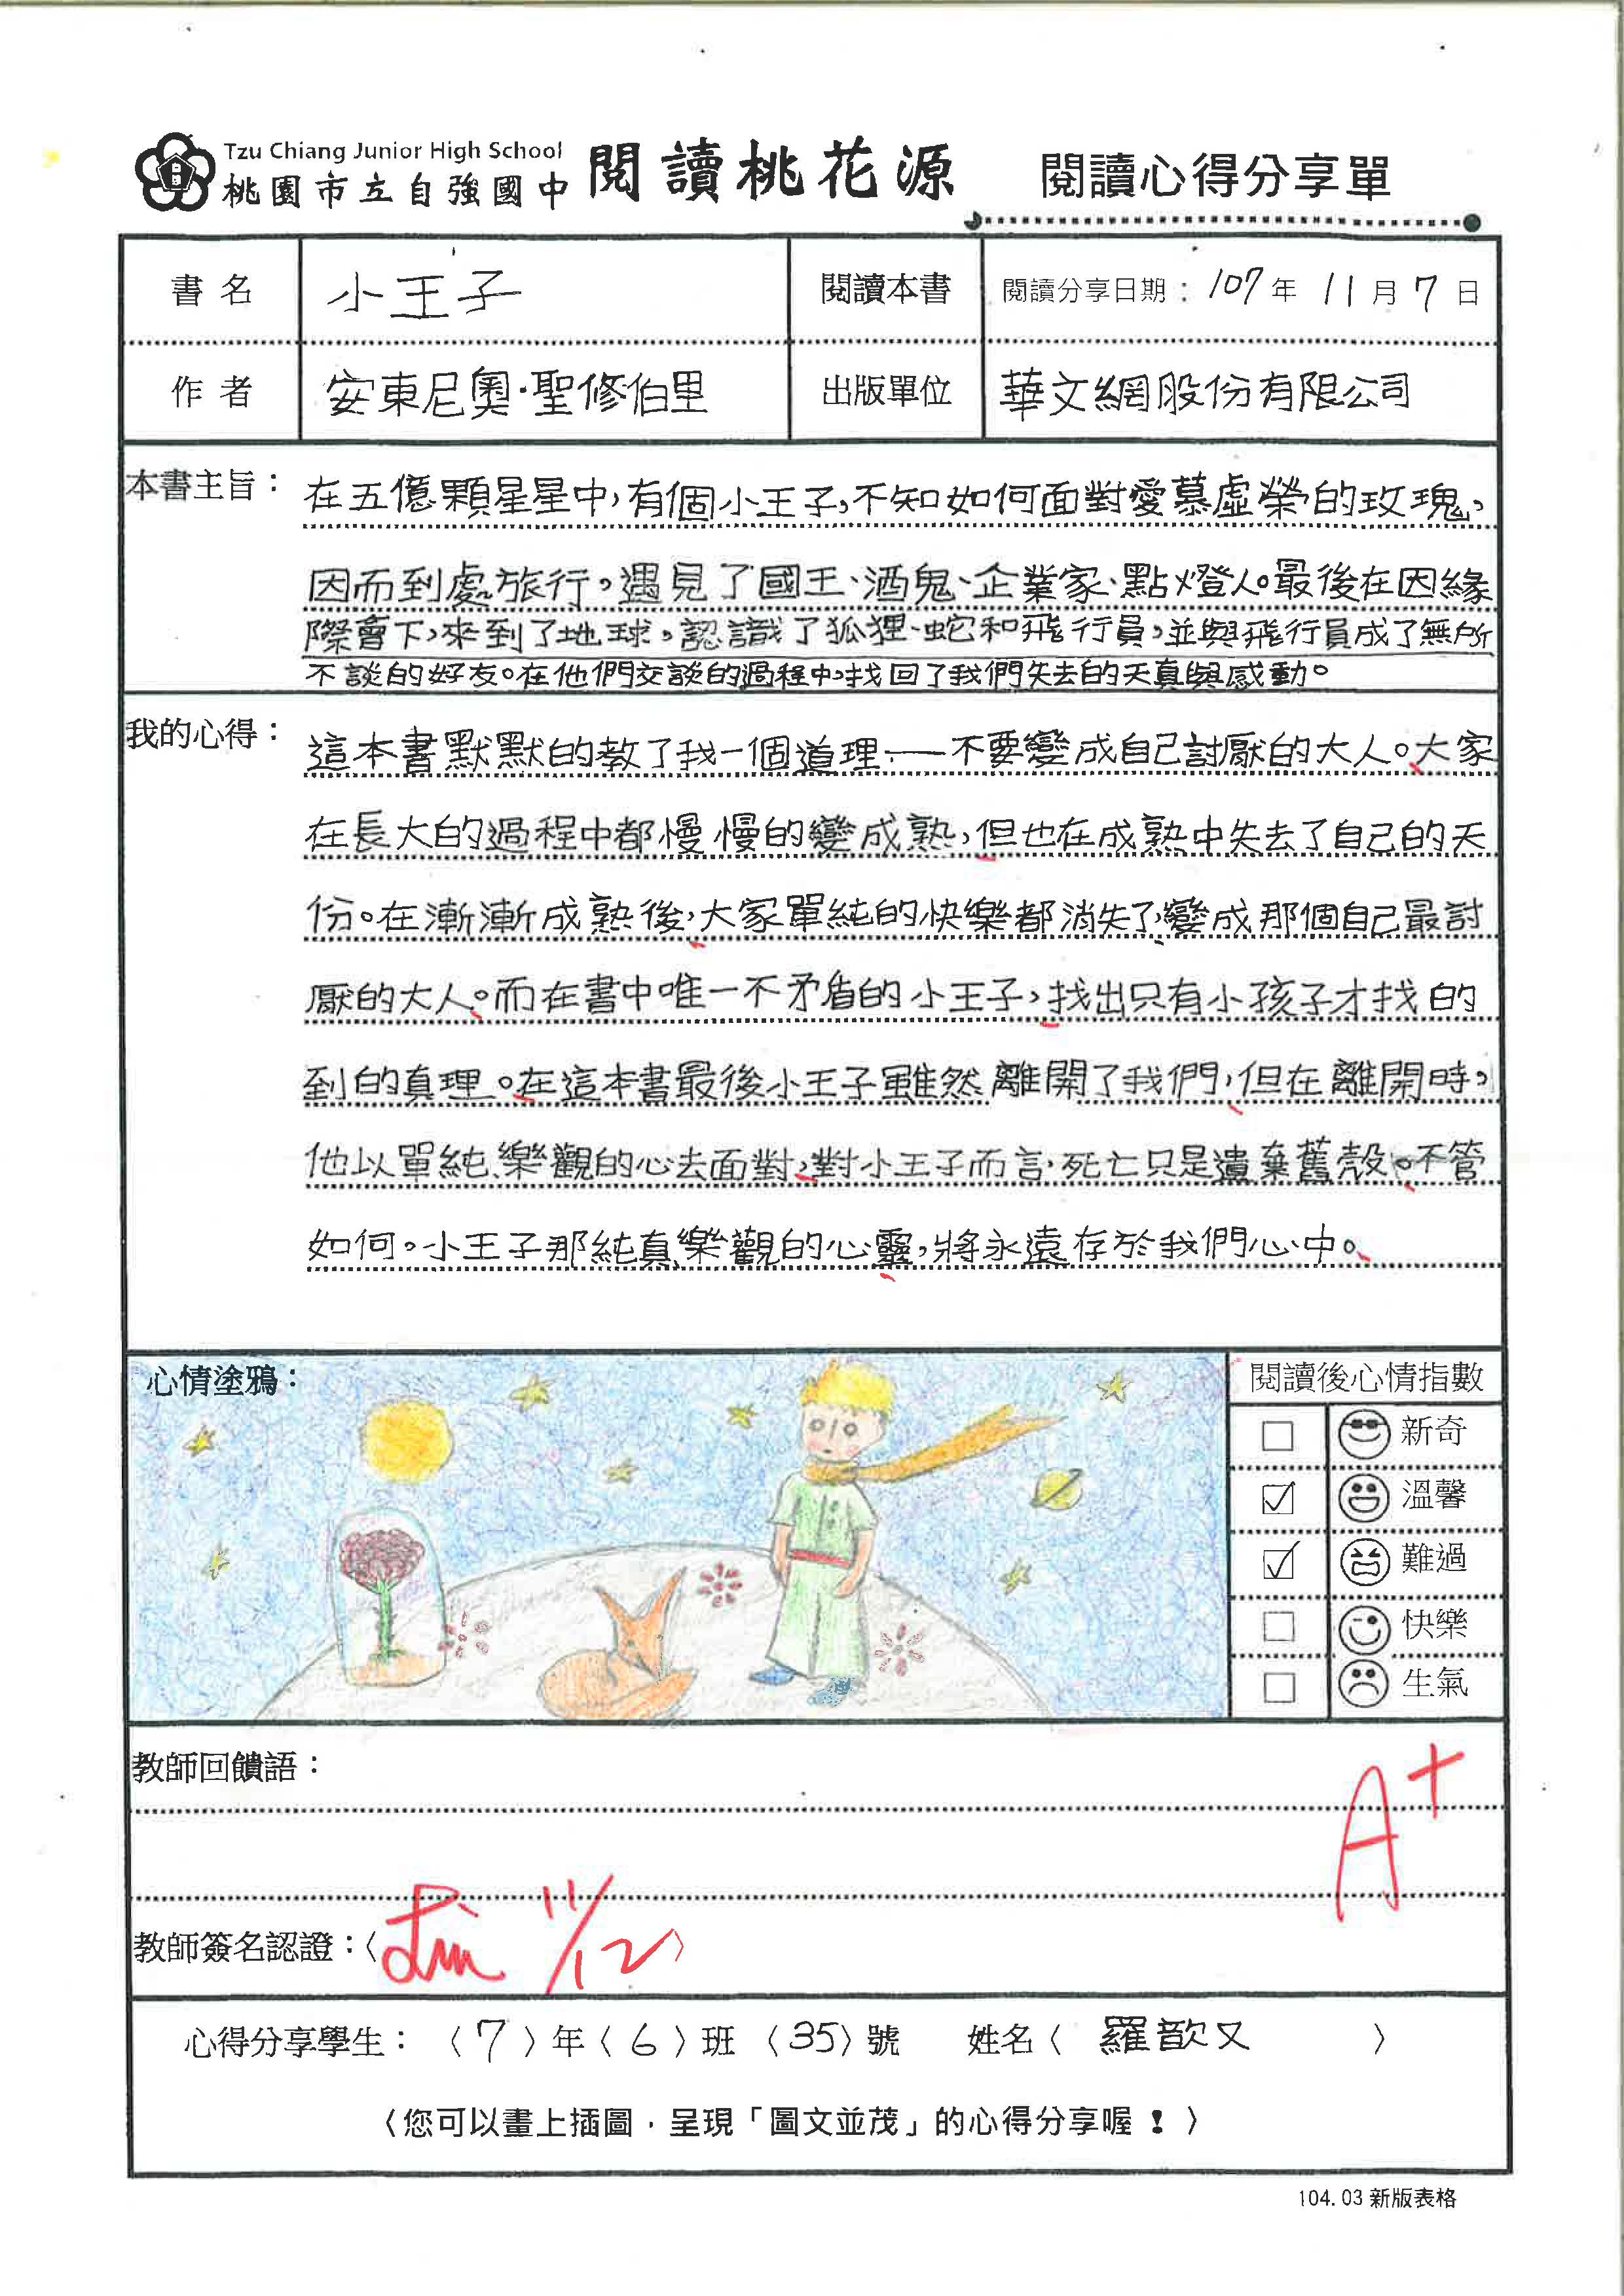 Tzu Chiang Junior High School
桃園市立自強國中 閱讀桃花源 閱讀心得分享單
書名 小王子 閱讀本書 閱讀分享日期：107年11月7日
作者 安東尼奧·聖修伯里 出版單位 華文網股份有限公司
本書主旨：在五億顆星星中，有個小王子，不知如何面對愛慕虛榮的玫瑰，
因而到處旅行。遇見了國王、酒鬼、企業家、點燈人。最後在因緣
際會下，來到了地球。認識了狐狸、蛇和飛行員，並與飛行員成了無所
不談的好友。在他們交談的過程中，找回了我們失去的天真與感動。
我的心得：這本書默默的教了我一個道理——不要變成自己討厭的大人。大家
在長大的過程中都慢慢的變成熟，但也在成熟中失去了自己的天
份。在漸漸成熟後，大家單純的快樂都消失了，變成那個自己最討
厭的大人。而在書中唯一不矛盾的小王子，找出只有小孩子才找的
到的真理。在這本書最後小王子雖然離開了我們，但在離開時，
他以單純、樂觀的心去面對，對小王子而言，死亡只是遺棄舊殼。不管
如何。小王子那純真、樂觀的心靈，將永遠存於我們心中。
心情塗鴉：
閱讀後心情指數
□ 新奇
☑ 溫馨
☑ 難過
□ 快樂
□ 生氣
教師回饋語：
A+
教師簽名認證：〈Lin 11/12〉
心得分享學生：〈7〉年〈6〉班〈35〉號 姓名〈羅歆又〉
〈您可以畫上插圖，呈現「圖文並茂」的心得分享喔！〉
104.03新版表格